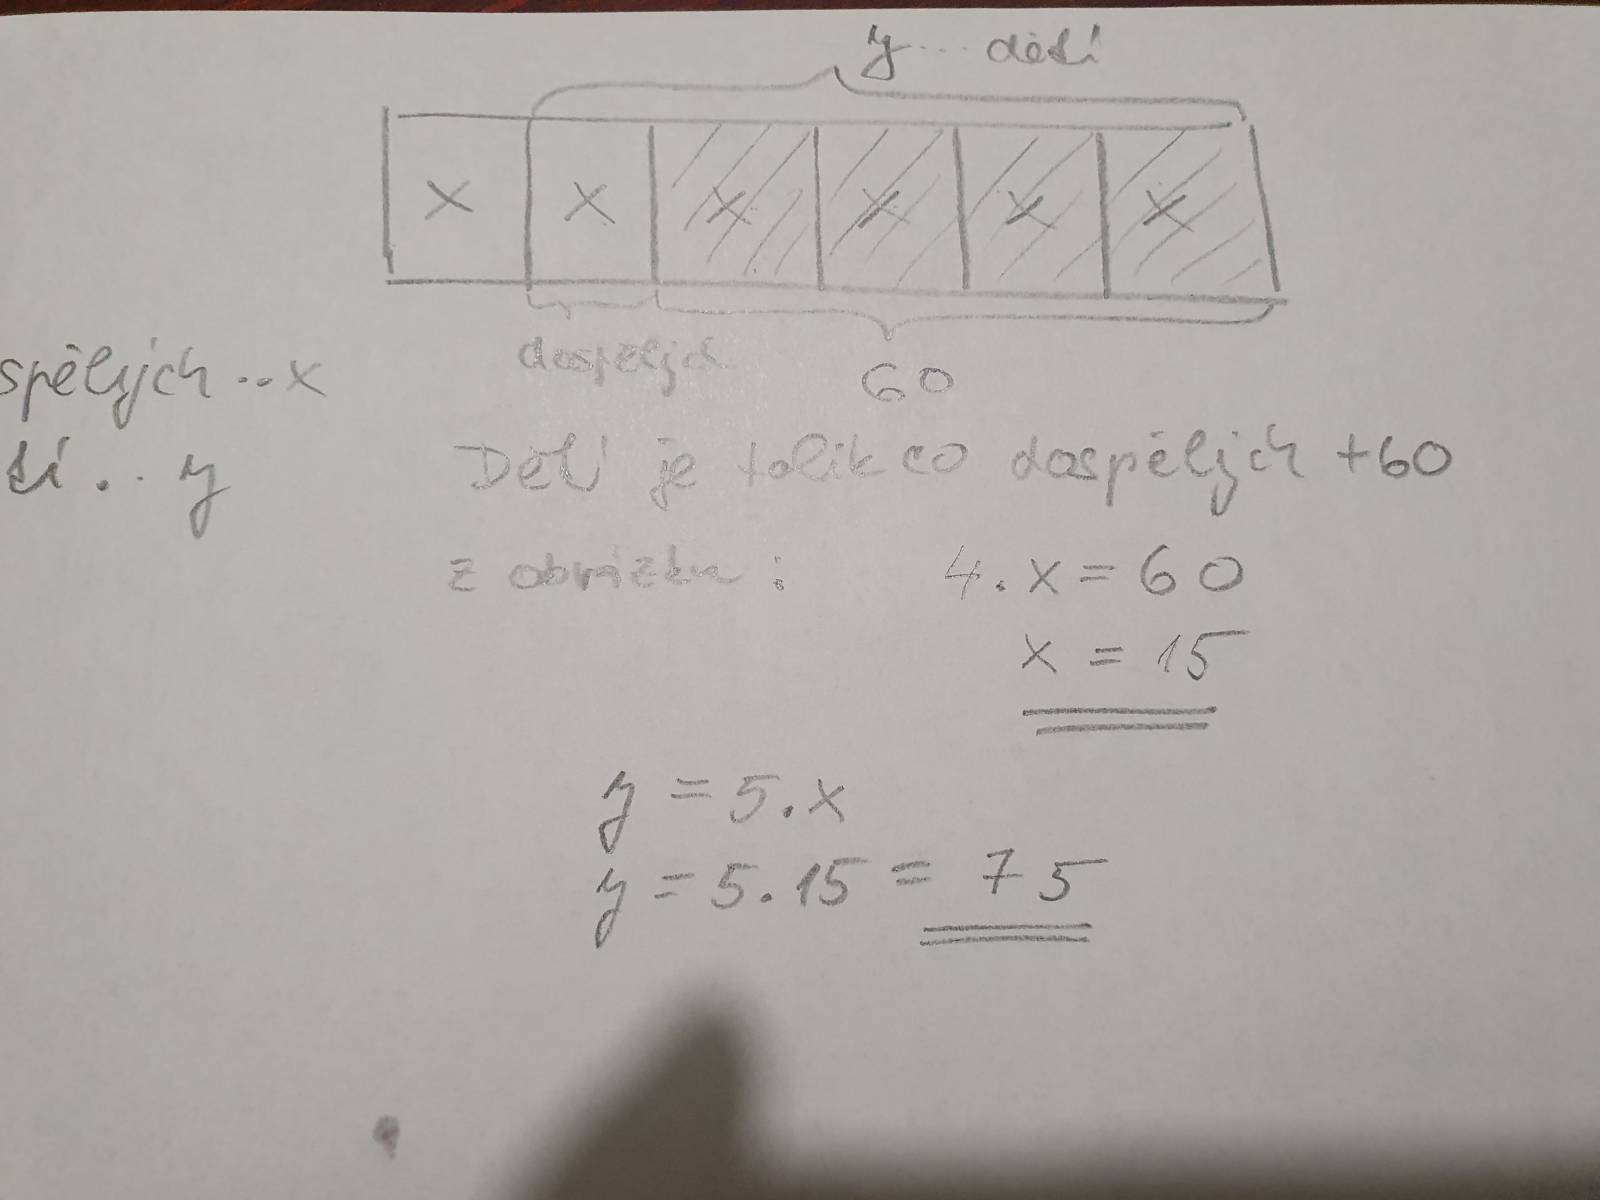 y... dětí
x x x x x x
dospělých
60
spělých..x
tí... y
Dětí je tolik co dospělých +60
z obrázku: 4.x=60
x = 15
y = 5.x
y = 5.15 = 75